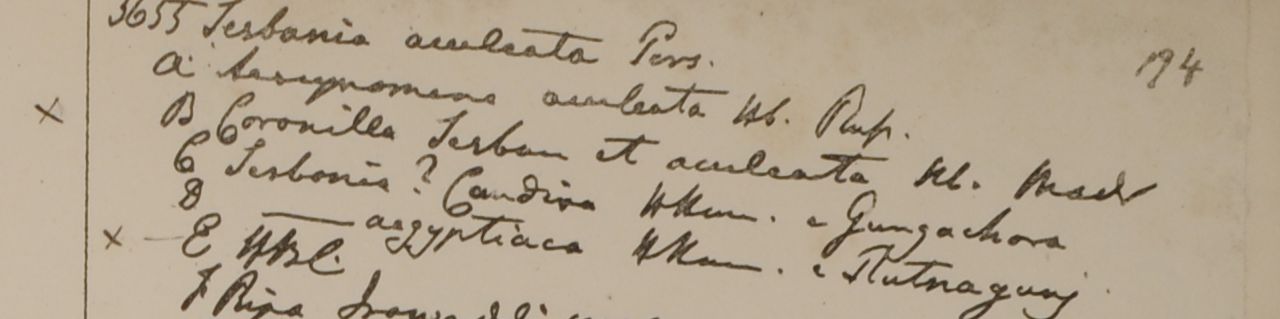 5655 Sesbania aculeata Pers.
194
a Aeschynomene aculeata Hb. Rup.
B Coronilla Sesban et aculeata Hb. Madr
C Sesbania? Candida HHam. e Gungachora
D —— aegyptiaca HHam. e Rutnagunj
E HBC.
F Ripa